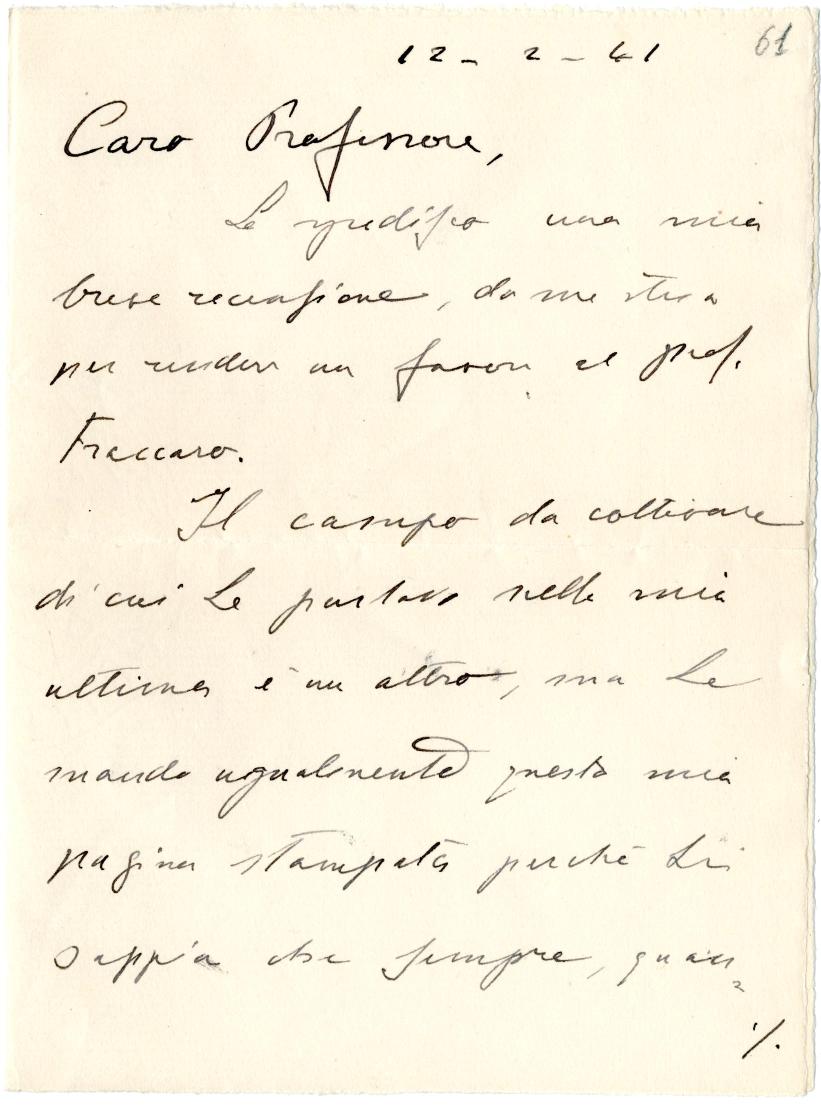 61
12 - 2 - 41
Caro Professore,
Le spedisco una mia
breve recensione, da me stesa
per rendere un favore al prof.
Fraccaro.
Il campo da coltivare
di cui Le parlavo nella mia
ultima è un altro, ma Le
mando ugualmente questa mia
pagina stampata perché Lei
sappia che sempre, quan=
./.